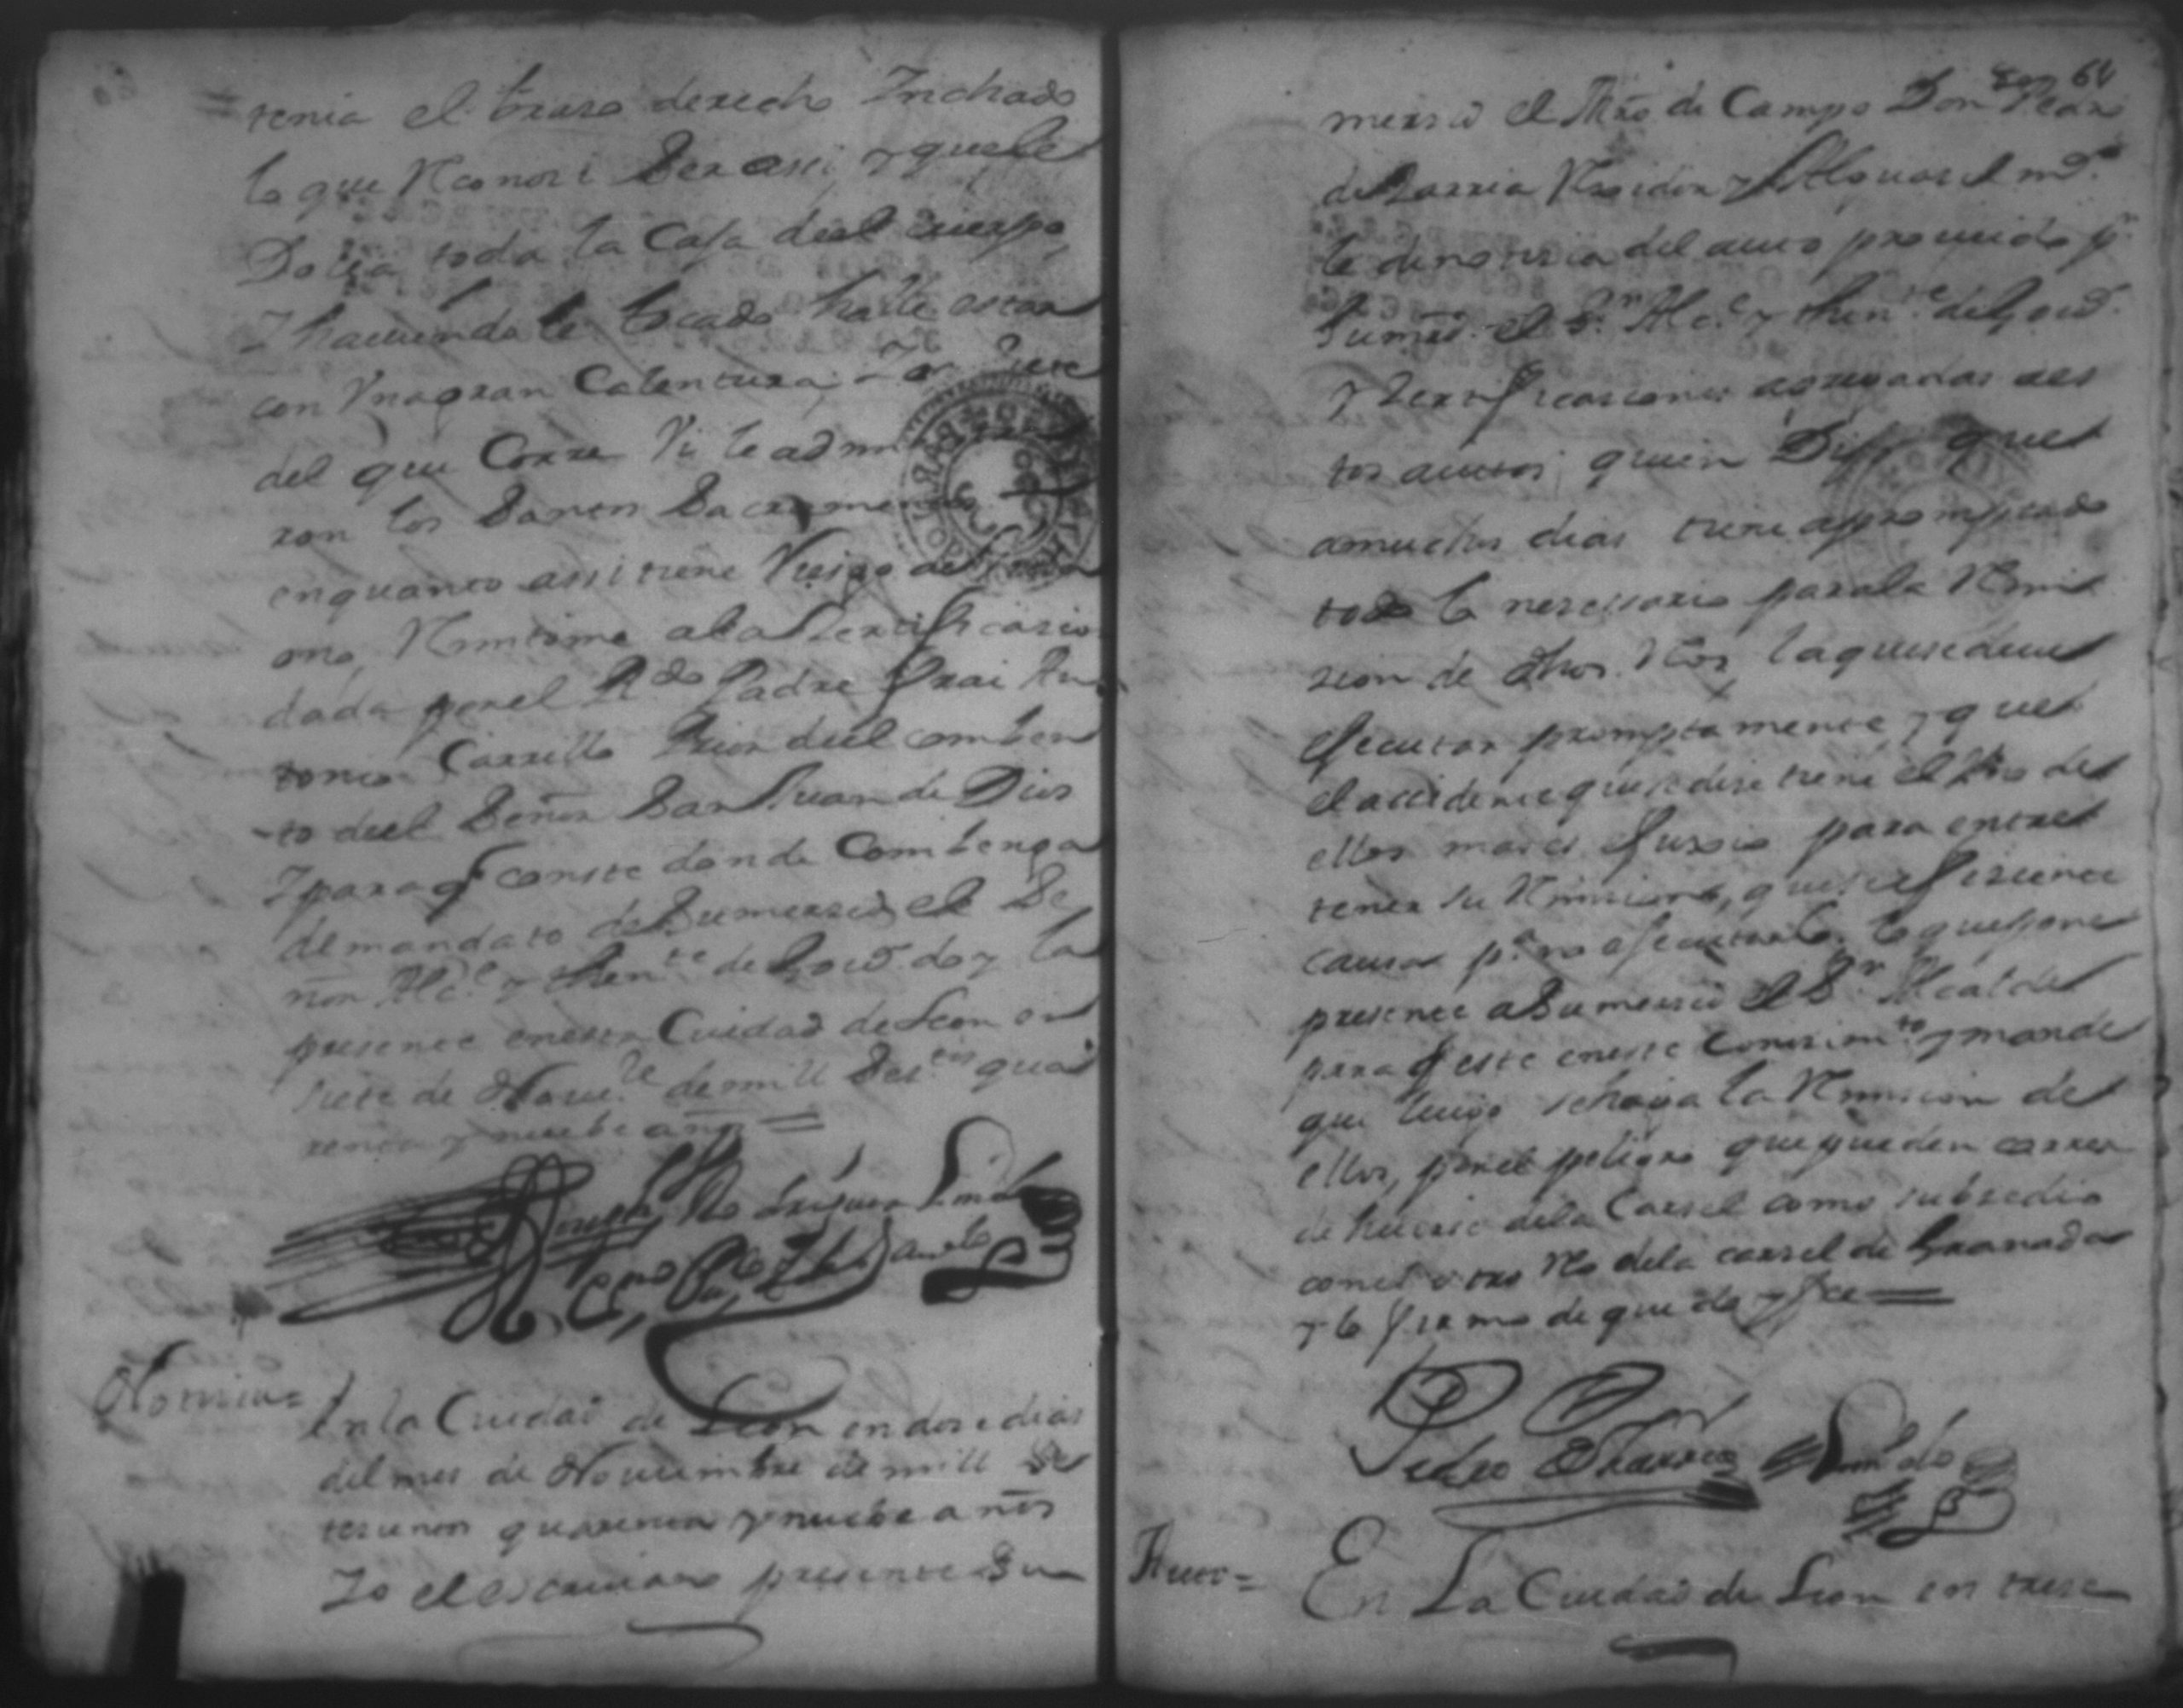 tenia el braso derecho Inchado
lo que Reconosi Ser assi, y que le
Dolia toda la Caja deel cuerpo,
I haviendole tocado halle estar
con Vna gran Calentura, I en siete
del que Corre Vi le admi
ron los Santos Sacramentos
enquanto assi tiene Riesgo de
ono, Remitome a la Sertificasion
dada por el R.do Padre Frai An
tonio Carrillo Prior deel comben
to deel Señor San Juan de Dios
I para q conste donde Combenga
de mandato de Sumersed el Se
ñor Alc.e y then.te de Gov.or doy la
presente en esta Ciudad de Leon en
siete de Nou.re de mill Set.tos qua
renta y nuebe años =
Joseph
Es.no Pu.co
Notisia=
En la Ciudad de Leon en dose dias
del mes de Nouiembre de mill Se
tesientos quarenta y nuebe años
Io el escriuano presente Su
64
mersed el Mro de Campo Don Pedro
de Sarria Regidor y Alguasil m.or
le di notisia del auto proueido p.r
Sumrd. el S.r Alc.e y then.te de Gov.or
y Sertificasiones agregadas a es
tos autos, quien Dijo que
a muchos dias tiene aprompttado
todo lo nesessario para la Remi
sion de dhos Reos, la que se deue
ejecutar promptamente, y que
el accidente que se dise tiene el Reo de
ellos no es fuersa para entre
tener su Remision, que sea sufisiente
causa p.a no ejecutarlo, lo que pone
presente a Sumersed el S.r Alcalde
para q este en este Conosim.to y mande
que luego se haga la Remision de
ellos, por el peligro que pueden correr
de huirse dela Carsel como subsedio
con el otro Reo dela carsel de Granada
y lo firmo de que doy fee =
Pedro de Sarria
Auto=
En La Ciudad de Leon en trese